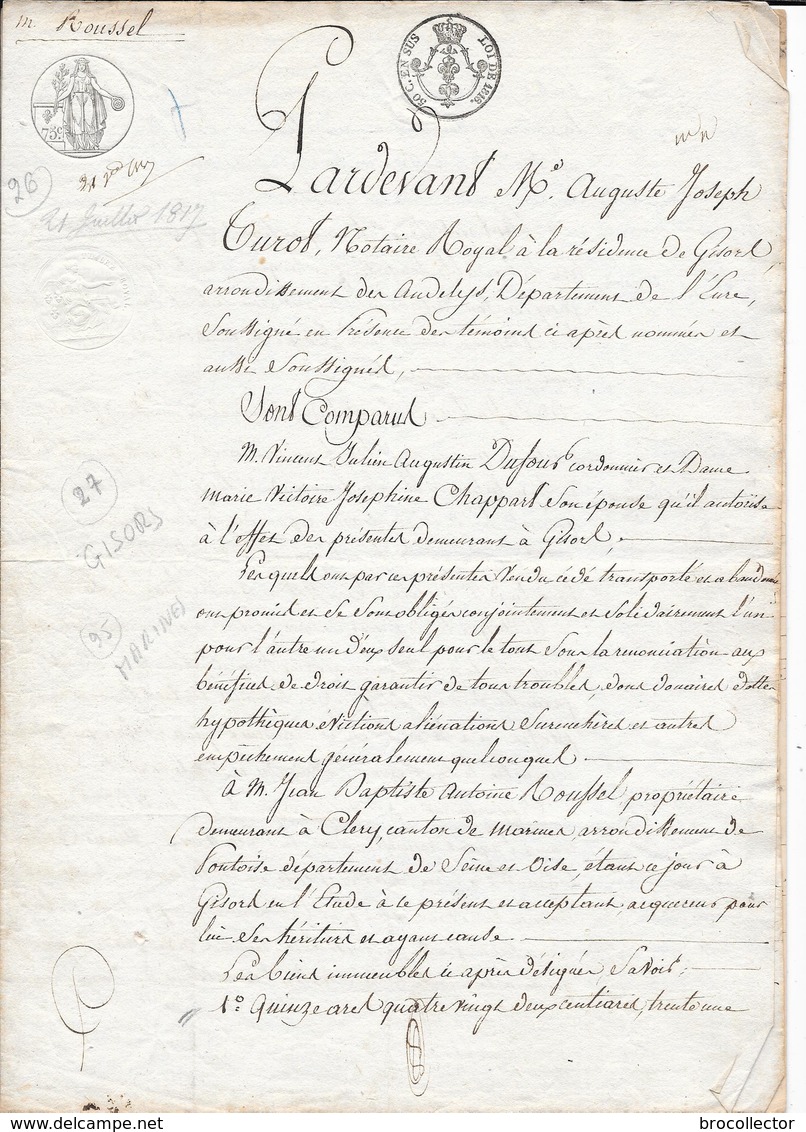 M. Roussel
50 C. EN SUS LOI DE 1816.
75c.
26
21 Juillet 1817
Pardevant Me. Auguste Joseph
Turot, Notaire Royal à la résidence de Gisors,
arrondissement des Andelys, Département de l'Eure,
Soussigné en Présence des témoins ci après nommés et
aussi Soussignés,
Sont Comparus
M. Vincent Julien Augustin Dufour cordonnier et Dame
Marie Victoire Josephine Chappart Son épouse qu'il autorise
à l'effet des présentes demeurant à Gisors,
27
GISORS
Lesquels ont par ces présentes Vendu cédé transporté et abandonné
ont promis et Se Sont obligés conjointement et Solidairement l'un
95
MARINES
pour l'autre un d'eux seul pour le tout Sous la renonciation aux
bénéfices de droit garantir de tous troubles, dons douaires dettes
hypothèques évictions aliénations Surenchères et autres
empêchement généralement quelconques
à M. Jean Baptiste Antoine Roussel, propriétaire
demeurant à Clery, canton de Marines, arrondissement de
Pontoise département de Seine et Oise, étant ce jour à
Gisors en l'Etude à ce présent et acceptant, acquereur pour
lui Ses héritiers et ayans cause
Les biens immeubles ci après désignés Savoir;
1o. Quinze ares quatre vingt deux centiares, trente une
brocollector